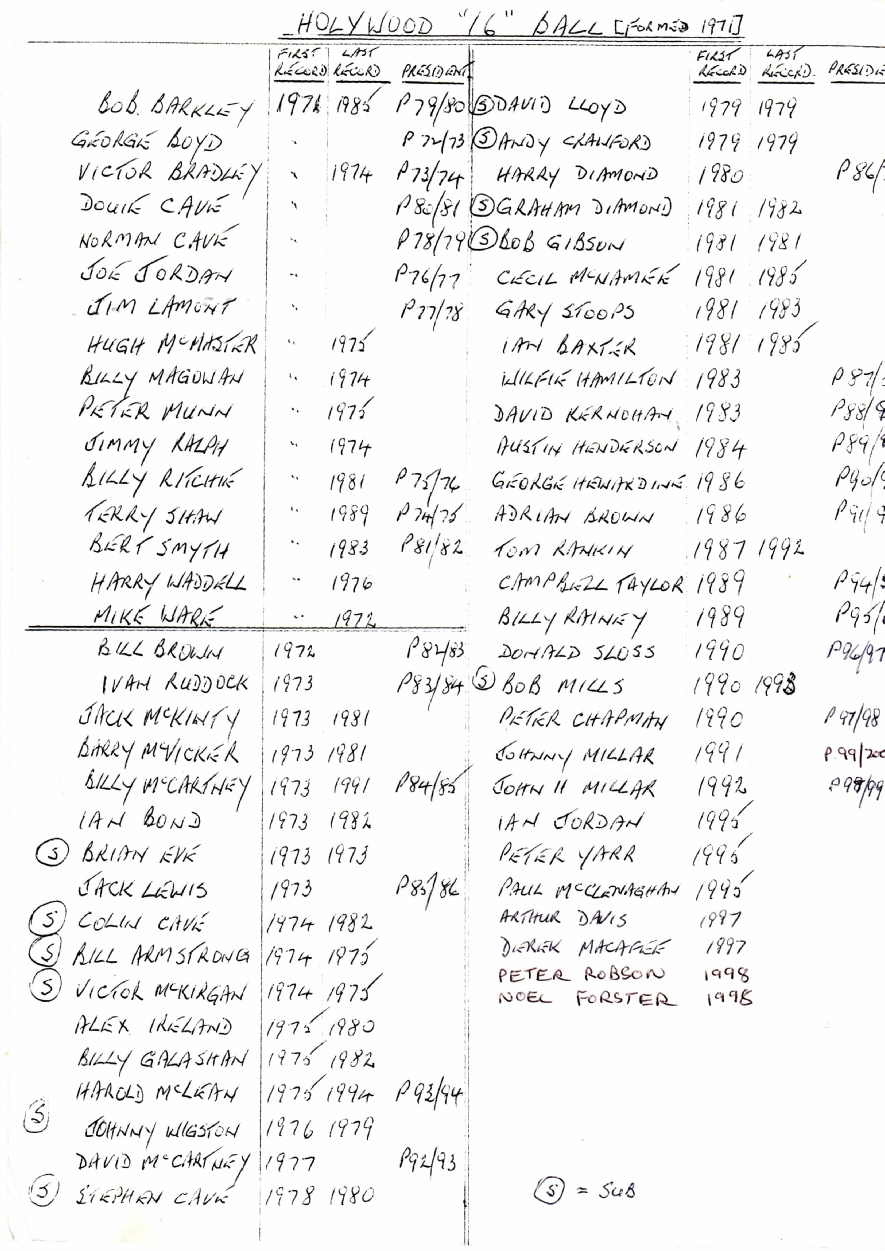 HOLYWOOD "16" BALL [FORMED 1971]
FIRST RECORD LAST RECORD PRESIDENT
BOB. BARKLEY 1971 1985 P79/80
GEORGE BOYD " P72/73
VICTOR BRADLEY " 1974 P73/74
DOUIE CAVE " P80/81
NORMAN CAVE " P78/79
JOE JORDAN " P76/77
JIM LAMONT " P77/78
HUGH McMASTER " 1975
BILLY MAGOWAN " 1974
PETER MUNN " 1975
JIMMY RALPH " 1974
BILLY RITCHIE " 1981 P75/76
TERRY SHAW " 1989 P74/75
BERT SMYTH " 1983 P81/82
HARRY WADDELL " 1976
MIKE WARE " 1972
BILL BROWN 1972 P82/83
IVAN RUDDOCK 1973 P83/84
JACK McKINTY 1973 1981
BARRY McVICKER 1973 1981
BILLY McCARTNEY 1973 1991 P84/85
IAN BOND 1973 1982
(S) BRIAN EVE 1973 1973
JACK LEWIS 1973 P85/86
(S) COLIN CAVE 1974 1982
(S) BILL ARMSTRONG 1974 1975
(S) VICTOR McKIRGAN 1974 1975
ALEX IRELAND 1975 1980
BILLY GALASHAN 1975 1982
HAROLD McLEAN 1975 1994 P93/94
(S) JOHNNY WIGSTON 1976 1979
DAVID McCARTNEY 1977 P92/93
(S) STEPHEN CAVE 1978 1980
FIRST RECORD LAST RECORD. PRESIDE
(S) DAVID LLOYD 1979 1979
(S) ANDY CRAWFORD 1979 1979
HARRY DIAMOND 1980 P86/
(S) GRAHAM DIAMOND 1981 1982
(S) BOB GIBSON 1981 1981
CECIL McNAMEE 1981 1985
GARY STOOPS 1981 1983
IAN BAXTER 1981 1985
WILFIE HAMILTON 1983 P87/
DAVID KERNOHAN 1983 P88/
AUSTIN HENDERSON 1984 P89/
GEORGE HEWARDINE 1986 P90/
ADRIAN BROWN 1986 P91/
TOM RANKIN 1987 1992
CAMPBELL TAYLOR 1989 P94/
BILLY RAINEY 1989 P95/
DONALD SLOSS 1990 P96/97
(S) BOB MILLS 1990 1993
PETER CHAPMAN 1990 P97/98
JOHNNY MILLAR 1991 P.99/200
JOHN H MILLAR 1992 P98/99
IAN JORDAN 1995
PETER YARR 1995
PAUL McCLENAGHAN 1995
ARTHUR DAVIS 1997
DEREK MACAFEE 1997
PETER ROBSON 1998
NOEL FORSTER 1998
(S) = SUB